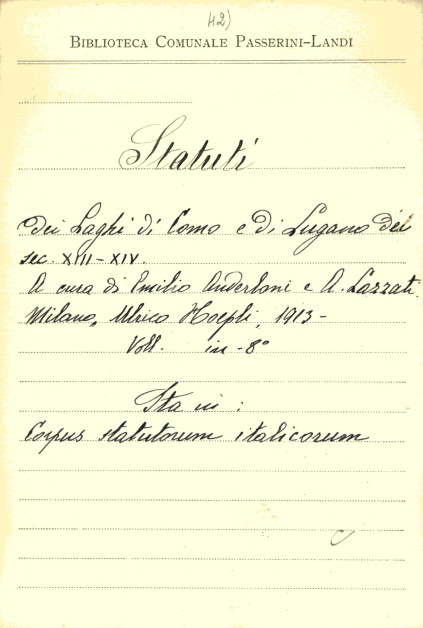 42)
BIBLIOTECA COMUNALE PASSERINI-LANDI
Statuti
dei Laghi di Como e di Lugano dei
sec. XIII-XIV.
A cura di Emilio Anderloni e A. Lazzati.
Milano, Ulrico Hoepli, 1913-
Voll. in-8°
Sta in:
Corpus statutorum italicorum